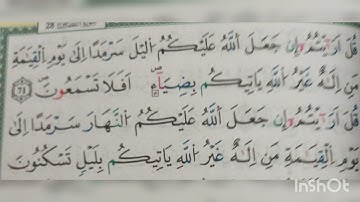 قُلْ اَرَءَيْتُمْ وَإِن جَعَلَ اللّٰهُ عَلَيْكُمُ الَّيْلَ سَرْمَدًا إِلَىٰ يَوْمِ الْقِيٰمَةِ
مَنْ اِلٰهٌ غَيْرُ اللّٰهِ يَاْتِيْكُم بِضِيَآءٍ ۖ اَفَلَا تَسْمَعُوْنَ ۝٧١
قُلْ اَرَءَيْتُمْ وَإِن جَعَلَ اللّٰهُ عَلَيْكُمُ النَّهَارَ سَرْمَدًا اِلَىٰ
يَوْمِ الْقِيٰمَةِ مَنْ اِلٰهٌ غَيْرُ اللّٰهِ يَاْتِيْكُم بِلَيْلٍ تَسْكُنُوْنَ
InShot